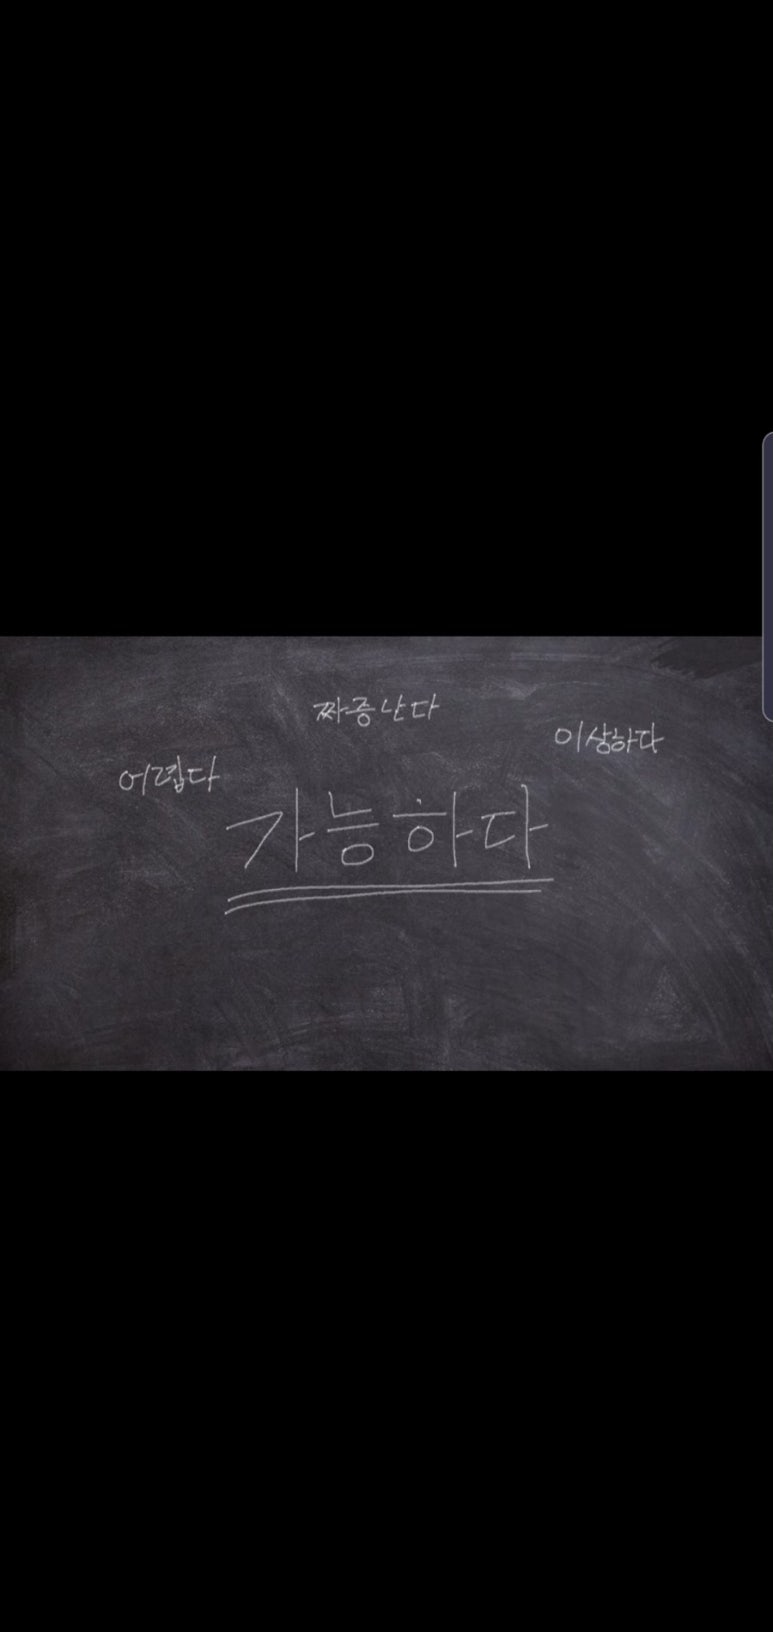 짜증난다
이상하다
어렵다
가능하다